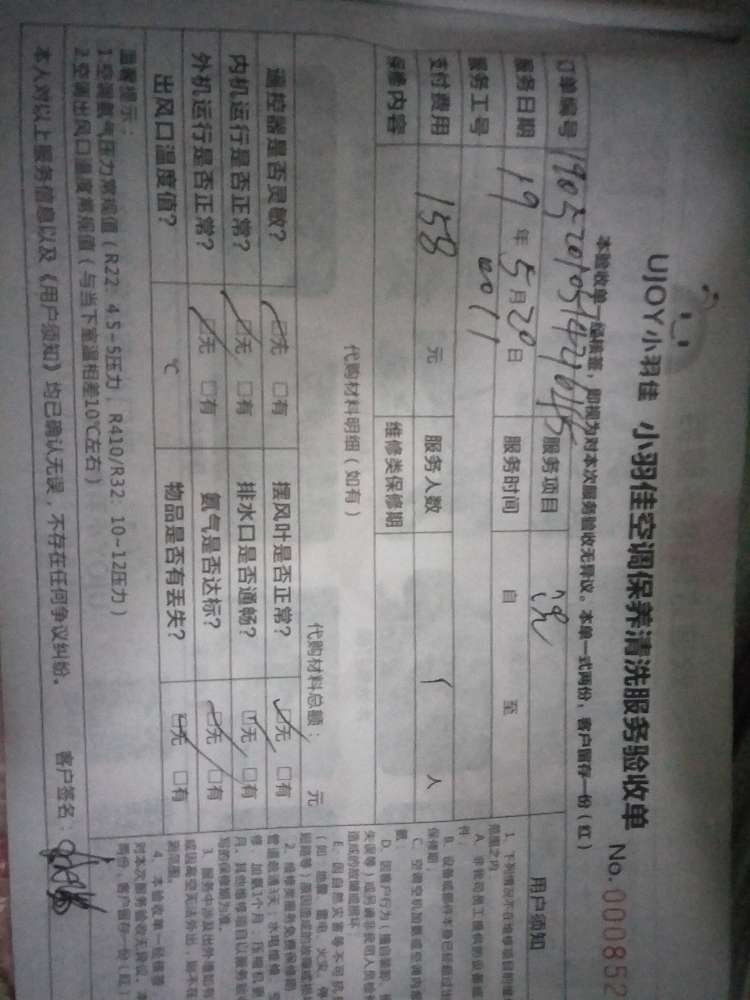 UJOY小羽佳 小羽佳空调保养清洗服务验收单 No.000852
本验收单一经核查，即视为对本次服务验收无异议。本单一式两份，客户留存一份（红）
订单编号 服务项目 洗
服务日期 19年5月20日 服务时间 自 至
服务工号 0011
支付费用 158 元 服务人数 1 人
保修内容 维修类保修期
代购材料明细（如有） 代购材料总额： 元
遥控器是否灵敏？ □无 □有 摆风叶是否正常？ □无 □有
内机运行是否正常？ □无 □有 排水口是否通畅？ □无 □有
外机运行是否正常？ □无 □有 氨气是否达标？ □无 □有
出风口温度值？ ℃ 物品是否有丢失？ □无 □有
温馨提示：
1.空调氨气压力常规值（R22：4.5-5压力，R410/R32：10~12压力）
2.空调出风口温度常规值（与当下室温相差10℃左右）
本人对以上服务信息以及《用户须知》均已确认无误，不存在任何争议纠纷。 客户签名：
用户须知
1、下列情况不在维修项目
范围之内
A、非我司员工提供的设备或
件；
B、设备或部件本身已经超过
保修期；
C、空调空机加氨或空调内
D、因客户行为（擅自装卸、
失误等）或另请非我司人员
造成的故障或损坏
E、因自然灾害等不可抗
（如：地震、雷电、火灾、
2、维修类服务免费保修期
管道疏通1天；水电维修、空
修、加氨1个月；压缩机
月。其他维修项目以服务验收
写的保修期为准。
3、服务中涉及出外墙如有
或因高空无法外出，则不在
务范围。
4、本验收单一经核查
对本次服务验收无异议。本
两份，客户留存一份（红）